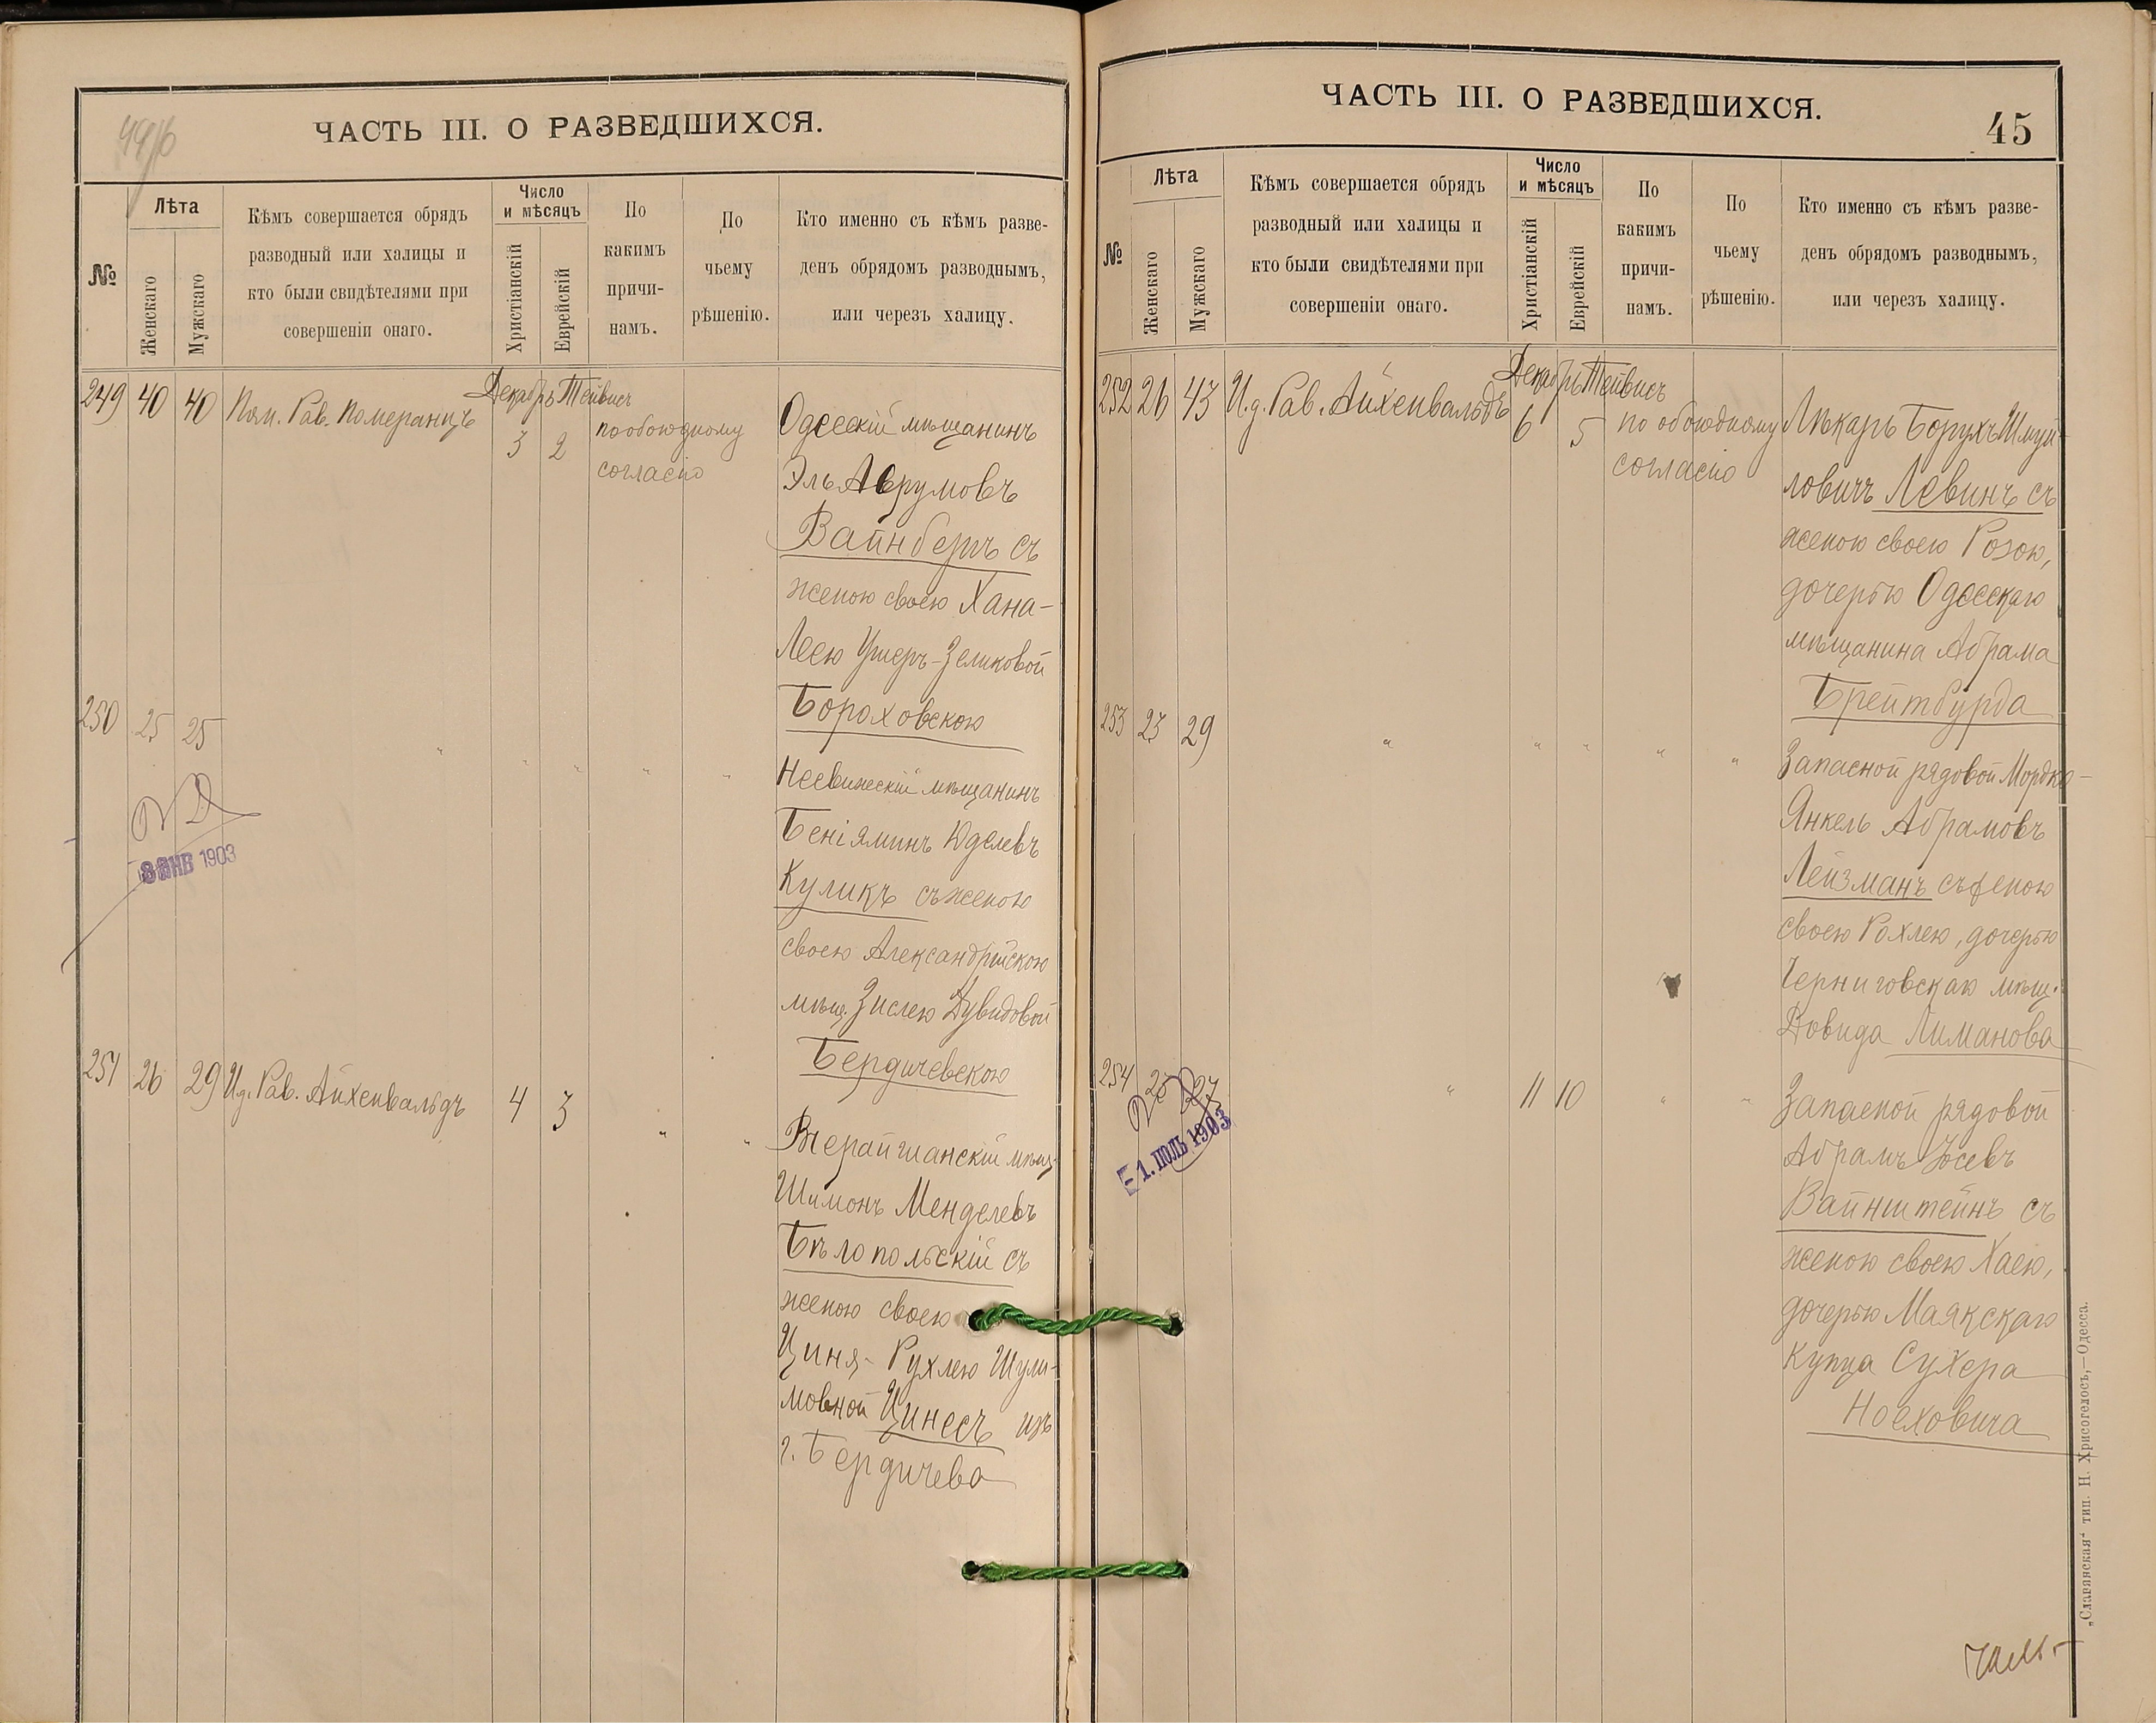 ЧАСТЬ III. О РАЗВЕДШИХСЯ.
№
Лѣта
Женскаго
Мужскаго
Кѣмъ совершается обрядъ
разводный или халицы и
кто были свидѣтелями при
совершеніи онаго.
Число
и мѣсяцъ
Христіанскій
Еврейскій
По
какимъ
причи-
намъ.
По
чьему
рѣшенію.
Кто именно съ кѣмъ разве-
денъ обрядомъ разводнымъ,
или черезъ халицу.
249 40 40 Пом. Рав. Померанцъ
Декабрь Тейвисъ
3 2
по обоюдному
согласію
Одесскій мѣщанинъ
Эль Аврумовъ
Вайнбергъ съ
женою своею Хана-
Леею Ушеръ-Зеликовой
Бороховскою
250 25 25 " " " " "
Несвижскій мѣщанинъ
Беніяминъ Юделевъ
Куликъ съ женою
своею Александрійскою
мѣщ. Зислею Дувидовой
Бердичевскою
8 ЯНВ 1903
251 26 29 И.д. Рав. Айхенвальдъ 4 3 " "
мѣщ.
Шимонъ Менделевъ
Бѣлопольскій съ
женою своею
Циня-Рухлею Шули-
мовной Цинесъ изъ
г. Бердичева
ЧАСТЬ III. О РАЗВЕДШИХСЯ.
45
№
Лѣта
Женскаго
Мужскаго
Кѣмъ совершается обрядъ
разводный или халицы и
кто были свидѣтелями при
совершеніи онаго.
Число
и мѣсяцъ
Христіанскій
Еврейскій
По
какимъ
причи-
намъ.
По
чьему
рѣшенію.
Кто именно съ кѣмъ разве-
денъ обрядомъ разводнымъ,
или черезъ халицу.
252 26 43 И.д. Рав. Айхенвальдъ
Декабрь Тейвисъ
6 5
по обоюдному
согласію
Лѣкарь Борухъ Шмуй-
ловичъ Левинъ съ
женою своею Розою,
дочерью Одесскаго
мѣщанина Абрама
Брейтбурда
253 23 29 " " " " "
Запасной рядовой Мордко-
Янкель Абрамовъ
Лейзманъ съ женою
своею Рохлею, дочерью
Черниговскаго мѣщ.
Довида Лиманова
254 25 27 " 11 10 " "
1. ІЮЛЬ 1903
Запасной рядовой
Абрамъ Іосевъ
Вайнштейнъ съ
женою своею Хаею,
дочерью Маякскаго
купца Сухера
Ноеховича
„Славянская" тип. Н. Хрисогелосъ,—Одесса.